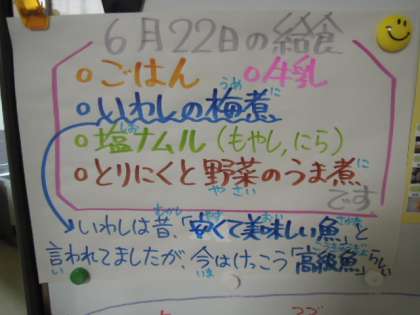 6月22日の給食
○ごはん ○牛乳
○いわしの梅煮
○塩ナムル(もやし,にら)
○とりにくと野菜のうま煮
です
いわしは昔、「安くて美味しい魚」と
言われてましたが、今はけっこう「高級魚」らしい